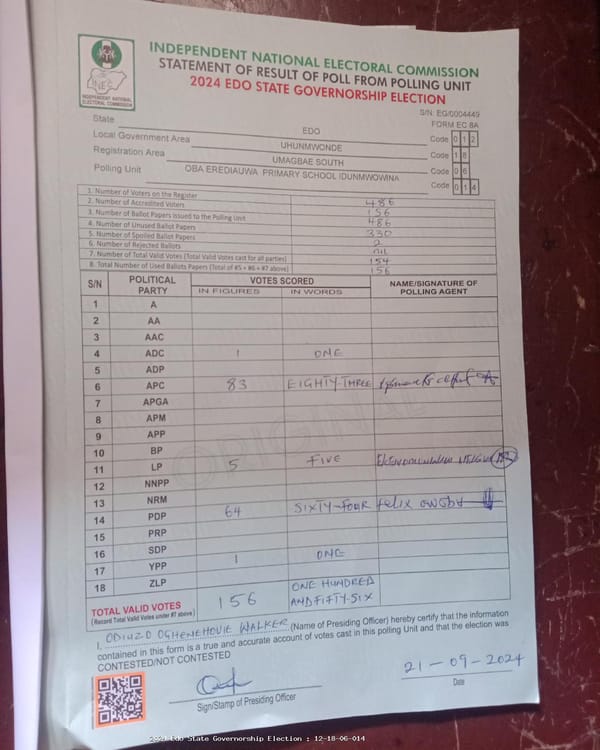 INEC
INDEPENDENT NATIONAL
ELECTORAL COMMISSION
INDEPENDENT NATIONAL ELECTORAL COMMISSION
STATEMENT OF RESULT OF POLL FROM POLLING UNIT
2024 EDO STATE GOVERNORSHIP ELECTION
S/N: EG/0004449
FORM EC 8A
State EDO Code 0 1 2
Local Government Area UHUNMWONDE Code 1 8
Registration Area UMAGBAE SOUTH Code 0 6
Polling Unit OBA EREDIAUWA PRIMARY SCHOOL IDUNMWOWINA Code 0 1 4
1. Number of Voters on the Register 486
2. Number of Accredited Voters 156
3. Number of Ballot Papers Issued to the Polling Unit 486
4. Number of Unused Ballot Papers 330
5. Number of Spoiled Ballot Papers 2
6. Number of Rejected Ballots nil
7. Number of Total Valid Votes (Total Valid Votes cast for all parties) 154
8. Total Number of Used Ballots Papers (Total of #5 + #6 + #7 above) 156
S/N POLITICAL PARTY VOTES SCORED NAME/SIGNATURE OF POLLING AGENT
IN FIGURES IN WORDS
1 A
2 AA
3 AAC
4 ADC 1 ONE
5 ADP
6 APC 83 EIGHTY-THREE
7 APGA
8 APM
9 APP
10 BP
11 LP 5 FIVE
12 NNPP
13 NRM
14 PDP 64 SIXTY-FOUR felix
15 PRP
16 SDP
17 YPP 1 ONE
18 ZLP
TOTAL VALID VOTES 156 ONE HUNDRED AND FIFTY-SIX
(Record Total Valid Votes under #7 above)
ORIGINAL
I, ODIUZO OGHENEHOVIE WALKER (Name of Presiding Officer) hereby certify that the information
contained in this form is a true and accurate account of votes cast in this polling Unit and that the election was
CONTESTED/NOT CONTESTED
21-09-2024
Sign/Stamp of Presiding Officer Date
2024 Edo State Governorship Election : 12-18-06-014